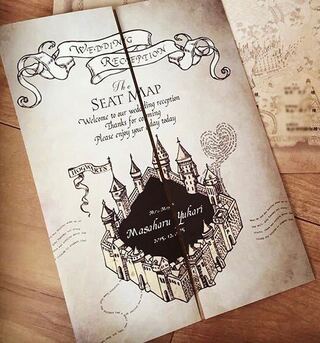 WEDDING
RECEPTION
The
SEAT MAP
Welcome to our wedding reception
Thanks for coming
Please enjoy your day today
HOGWARTS
Masaharu Yukari